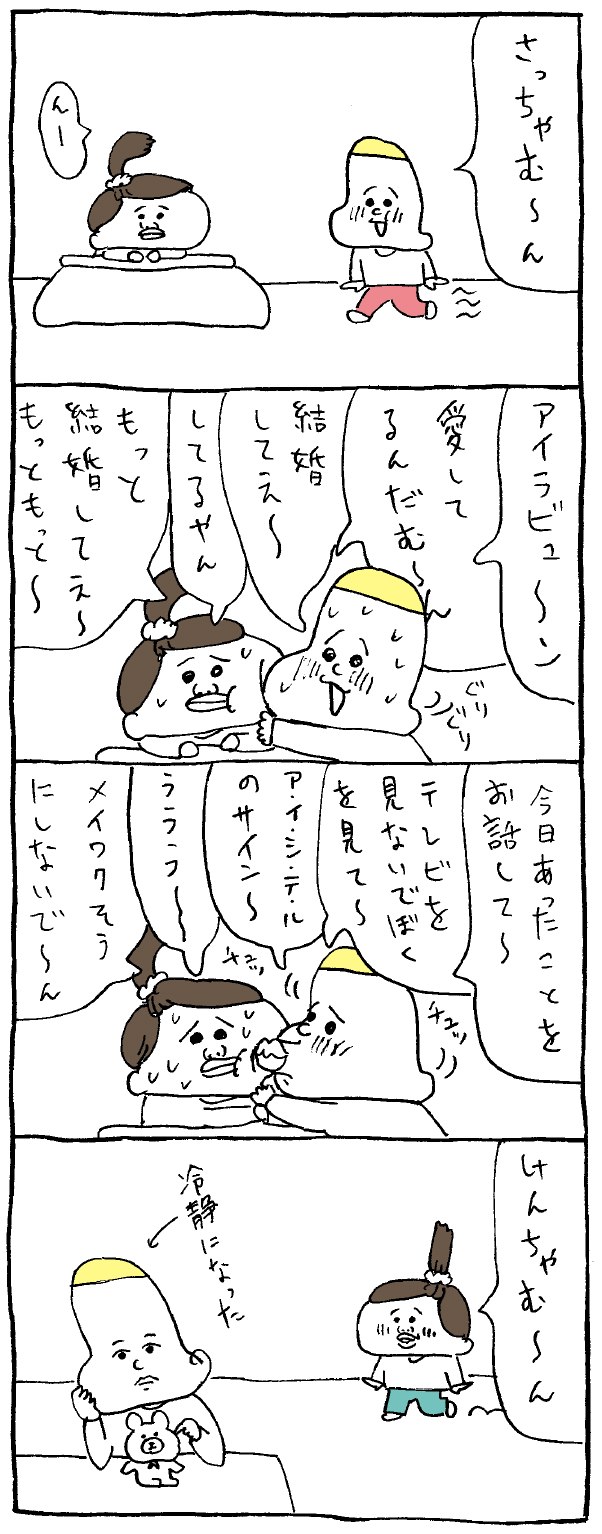 さっちゃむ〜ん
んー
アイラビュ〜ン
愛して
るんだむ〜ん
結婚
してえ〜
してるやん
もっと
結婚してえ〜
もっともっと〜
ぐり
ぐり
今日あったことを
お話して〜
テレビを
見ないでぼく
を見て〜
ア・イ・シ・テ・ル
のサイン〜
ラララ〜
メイワクそう
にしないで〜ん
チュッ
チュッ
けんちゃむ〜ん
冷静になった